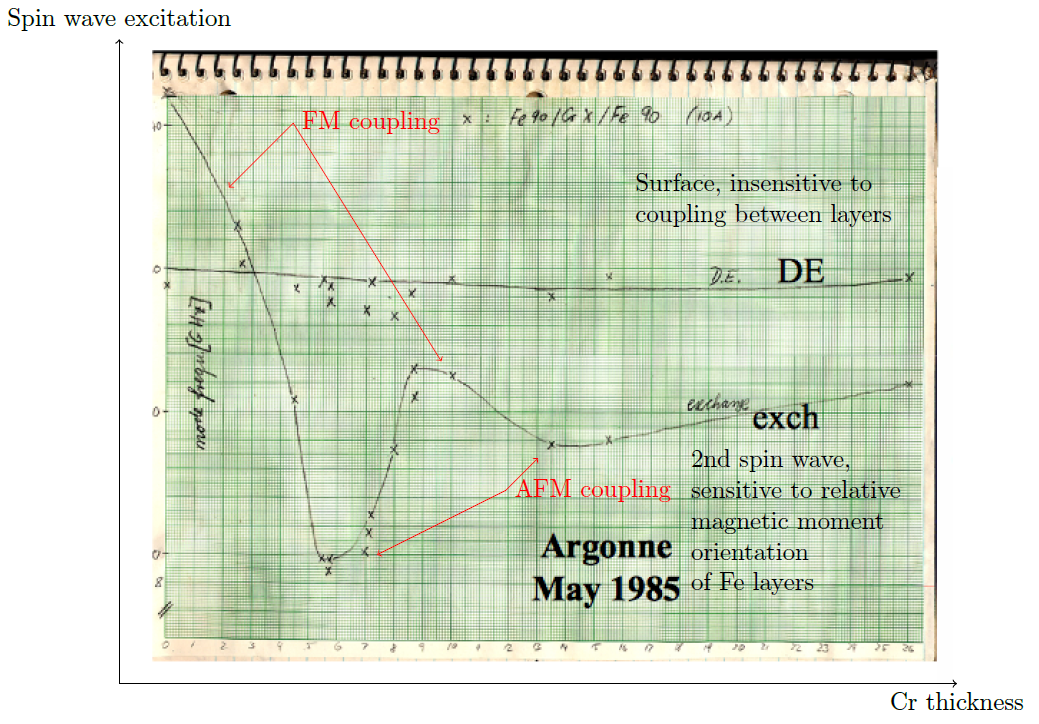 Spin wave excitation
FM coupling
x : Fe 90 / Cr X / Fe 90 (10A)
Surface, insensitive to
coupling between layers
D.E. DE
mode frequ. [GHz]
exchange
exch
2nd spin wave,
AFM coupling
sensitive to relative
magnetic moment
orientation
of Fe layers
Argonne
May 1985
8
0 1 2 3 4 5 7 8 9 10 12 13 14 15 16 17 18 19 20 21 22 23 24 25 26
Cr thickness